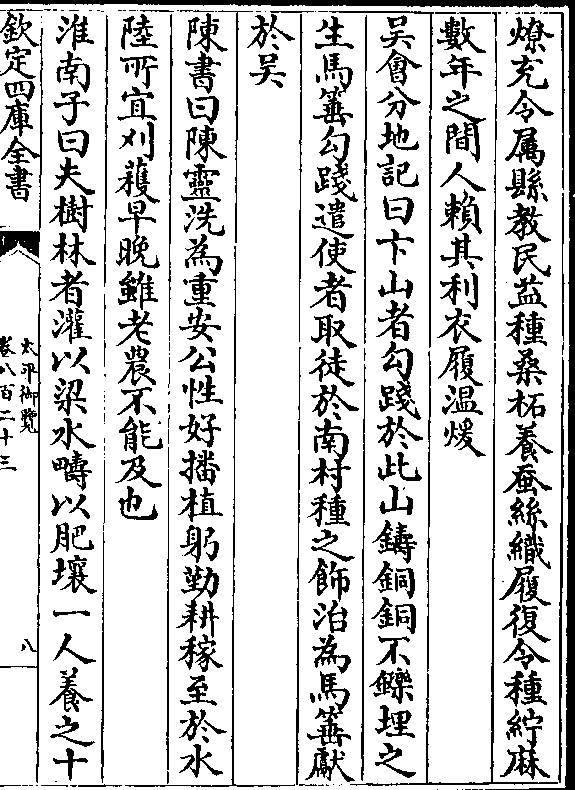 燎充令属縣教民益種桑柘養蚕絲織履復令種紵麻
數年之間人賴其利衣履温煖
吳會分地記曰卞山者勾踐於此山鑄銅銅不鑠埋之
生馬箠勾踐遣使者取徒於南村種之飾治為馬箠獻
於吳
陳書曰陳靈洗為重安公性好播植躬勤耕稼至於水
陸所宜刈穫早晚雖老農不能及也
淮南子曰夫樹林者灌以梁水疇以肥壤一人養之十
欽定四庫全書
太平御覽
卷八百二十三
八